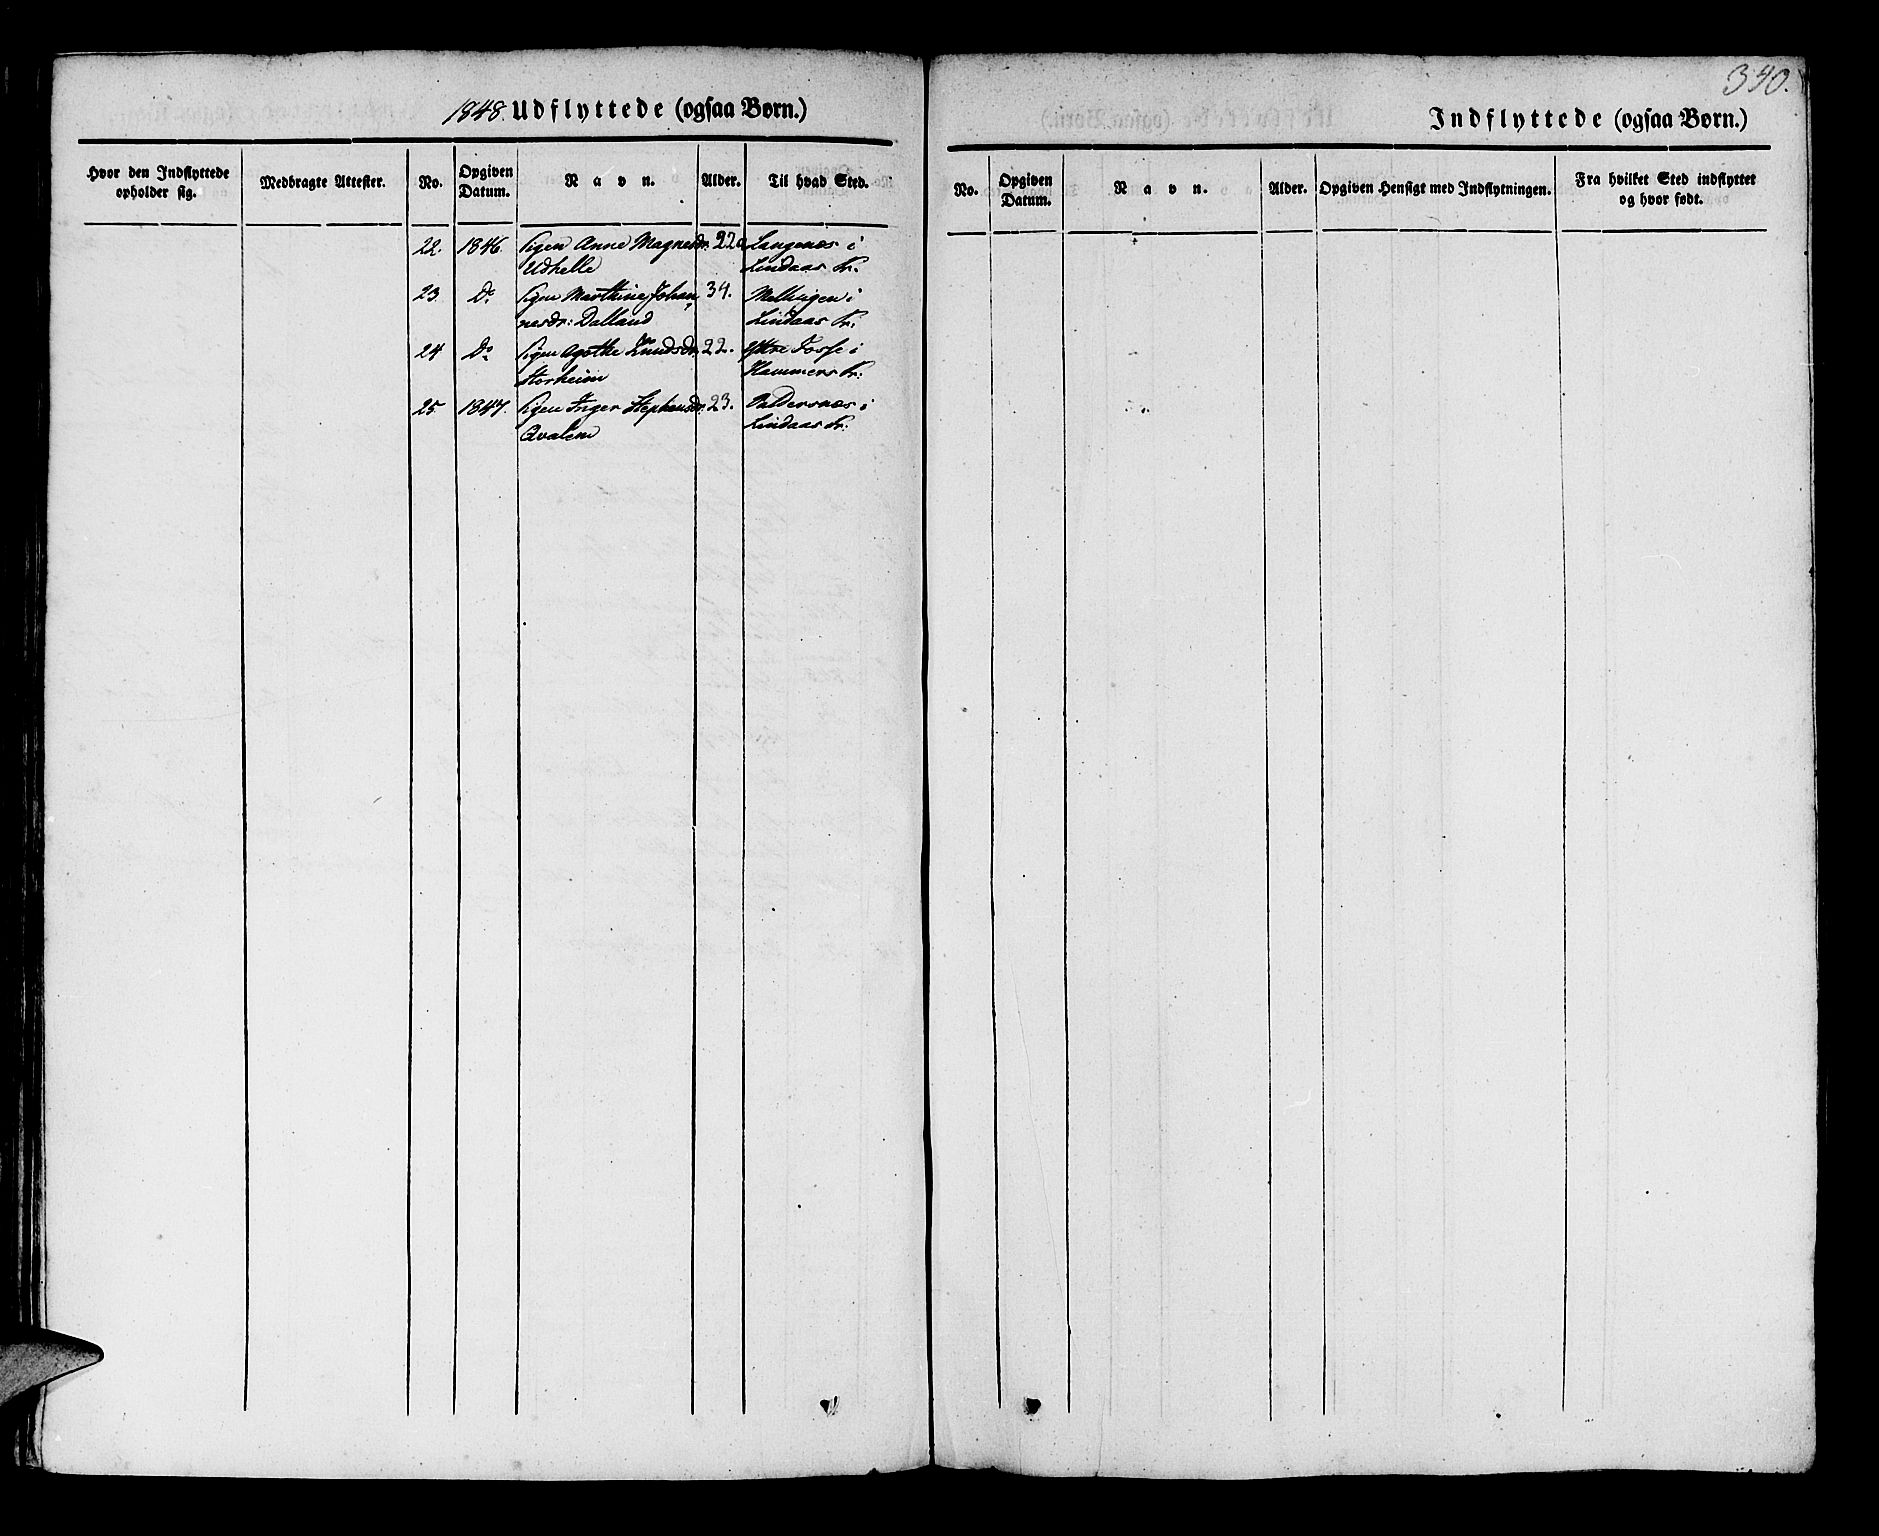 340.
1848. Udflyttede (ogsaa Børn.)
Hvor den Indflyttede opholder sig.
Medbragte Attester.
No.
Opgiven Datum.
Navn.
Alder.
Til hvad Sted.
22. 1846. Pigen Anne Magnesdr. 22 Langenæs i
Udhelle Lindaas Pr:
23. Do Pigen Marthine Johan 34. i
nesdr: Dalland Lindaas Pr:
24 Do Pigen Agathe Knudsdr. 22. Yttre Fosse i
Storheim Hammers Pr:
25. 1847. Pigen Inger Stephensdr. 23. Valdersnæs i
Qvalem Lindaas Pr:
Indflyttede (ogsaa Børn.)
No.
Opgiven Datum.
Navn.
Alder.
Opgiven Hensigt med Indflytningen.
Fra hvilket Sted indflyttet og hvor født.